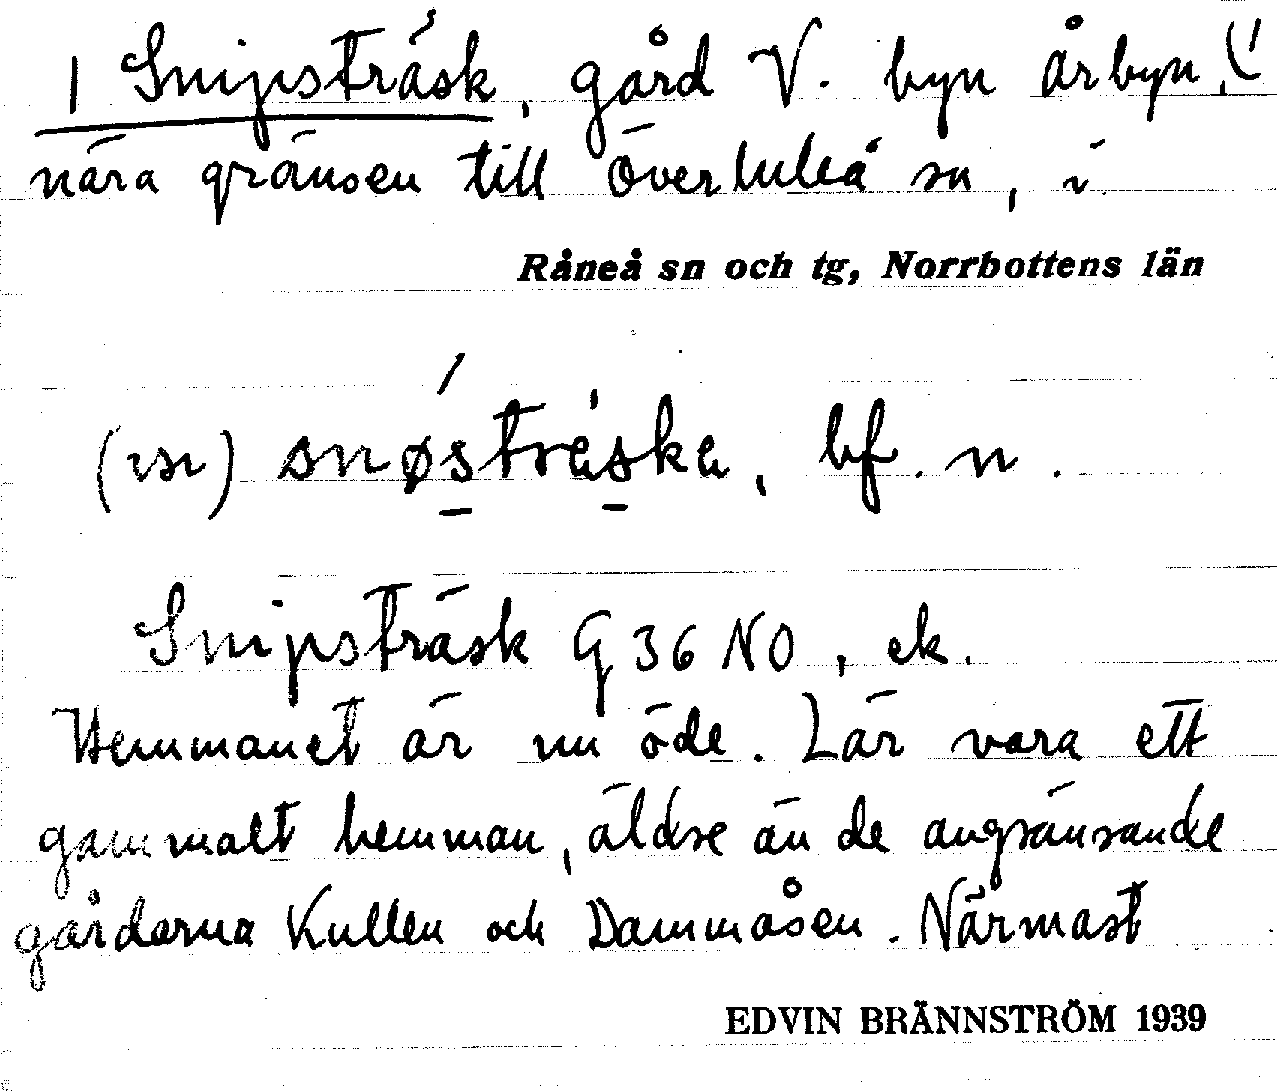 1 Snipsträsk, gård V. byn Årbyn,
nära gränsen till Överluleå sn, i
Råneå sn och tg, Norrbottens län
snøstrǻska, bf. n.
Snipsträsk G 36 NO, ek.
Hemmanet är nu öde. Lär vara ett
gammalt hemman, äldre än de angränsande
gårdarna Kullen och Dammåsen. Närmast
EDVIN BRÄNNSTRÖM 1939